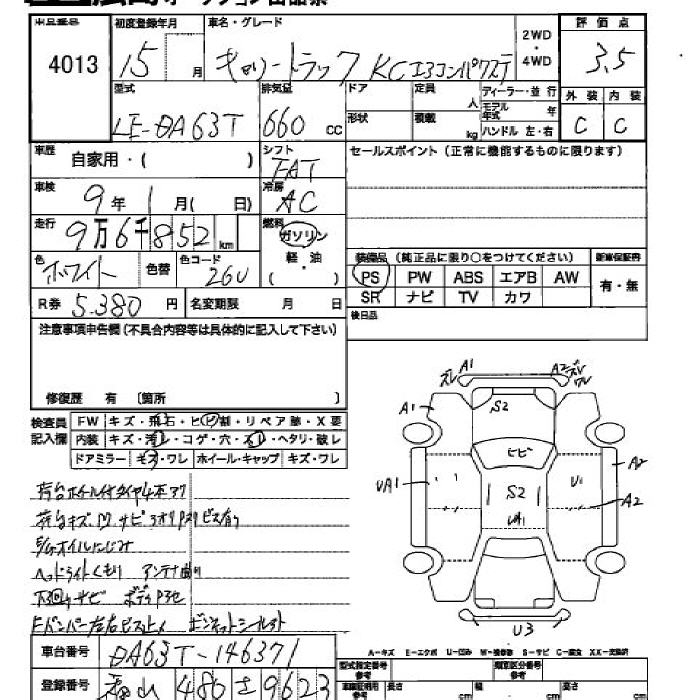 出品番号 初度登録年月 車名・グレード 2WD・4WD 評価点
4013 15 月 キャリートラック KCエアコンパワステ 3.5
型式 排気量 ドア 定員 人 ディーラー・並行 外装 内装
LE-DA63T 660 cc 形状 積載 kg モデル年式 年 ハンドル 左・右 C C
車歴 自家用・( ) シフト FAT セールスポイント(正常に機能するものに限ります)
車検 9年 1月( 日) 冷房 AC
走行 9万6千852 km 燃料 ガソリン 軽油 ( )
色 ホワイト 色替 色コード 26U
装備品 (純正品に限り○をつけてください) 新車保証書
PS PW ABS エアB AW 有・無
SR ナビ TV カワ
R券 5.380 円 名変期限 月 日 後日品
注意事項申告欄(不具合内容等は具体的に記入して下さい)
修復歴 有 〔箇所 〕
検査員記入欄 FW キズ・飛石・ヒビ割・リペア跡・X要
内装 キズ・汚レ・コゲ・穴・スレ・ヘタリ・破レ
ドアミラー キズ・ワレ ホイール・キャップ キズ・ワレ
荷台キズ凹サビ
オイルにじみ
ヘッドライトくもり アンテナ曲り
下回りサビ
A1 A2 ズレ ワレ
ズレ
A1 S2
ヒビ
UA1 S2 U1 A2
UA1 A2
U3
A-キズ E-エクボ U-凹み W-補修跡 S-サビ C-腐食 XX-交換済
車台番号 DA63T-146371
型式指定番号 参考 類別区分番号 参考
登録番号 福山 480 さ 9623
車検証明用 参考 長さ cm 幅 cm 高さ cm